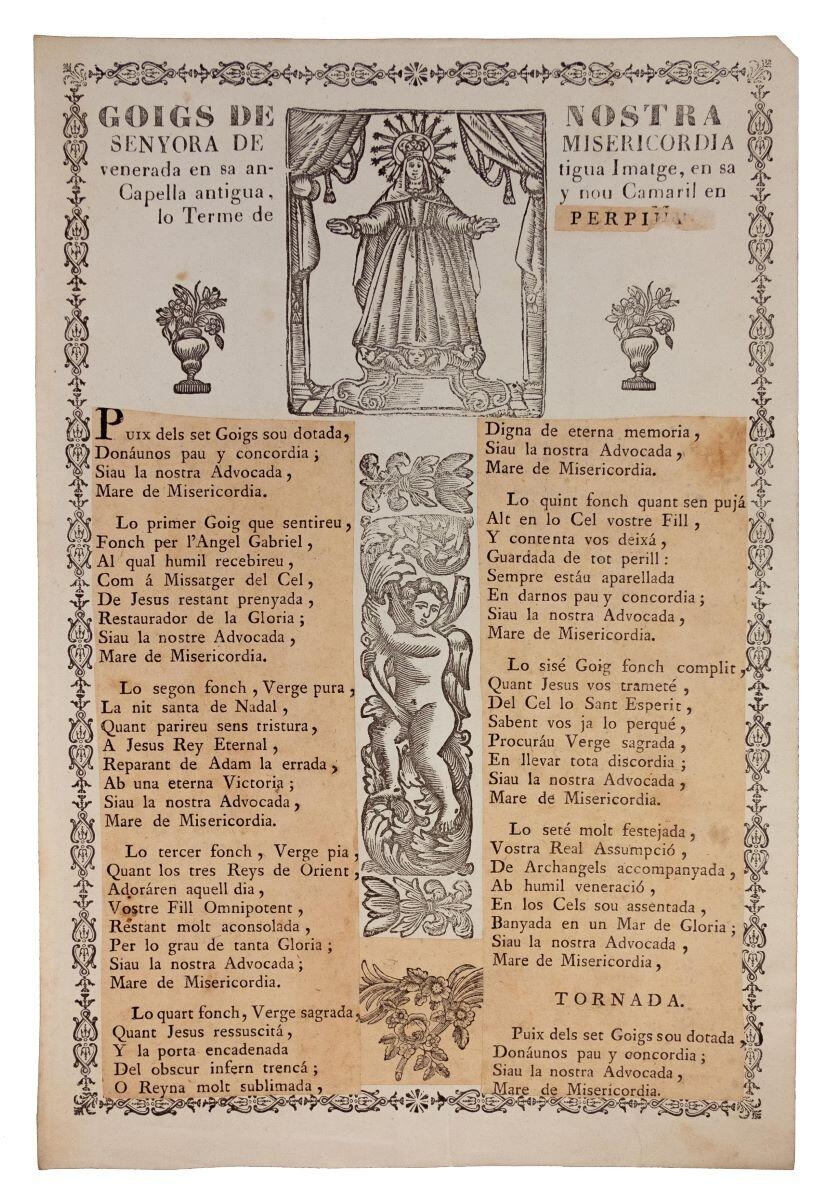 GOIGS DE NOSTRA
SENYORA DE MISERICORDIA
venerada en sa antigua Imatge, en sa
Capella antigua, y nou Camaril en
lo Terme de PERPIÑA
PUIX dels set Goigs sou dotada,
Donáunos pau y concordia;
Siau la nostra Advocada,
Mare de Misericordia.
Lo primer Goig que sentireu,
Fonch per l'Angel Gabriel,
Al qual humil recebireu,
Com á Missatger del Cel,
De Jesus restant prenyada,
Restaurador de la Gloria;
Siau la nostre Advocada,
Mare de Misericordia.
Lo segon fonch, Verge pura,
La nit santa de Nadal,
Quant parireu sens tristura,
A Jesus Rey Eternal,
Reparant de Adam la errada,
Ab una eterna Victoria;
Siau la nostra Advocada,
Mare de Misericordia.
Lo tercer fonch, Verge pia,
Quant los tres Reys de Orient,
Adoráren aquell dia,
Vostre Fill Omnipotent,
Restant molt aconsolada,
Per lo grau de tanta Gloria;
Siau la nostra Advocada;
Mare de Misericordia.
Lo quart fonch, Verge sagrada,
Quant Jesus ressuscitá,
Y la porta encadenada
Del obscur infern trencá;
O Reyna molt sublimada,
Digna de eterna memoria,
Siau la nostra Advocada,
Mare de Misericordia.
Lo quint fonch quant sen pujá
Alt en lo Cel vostre Fill,
Y contenta vos deixá,
Guardada de tot perill:
Sempre estáu aparellada
En darnos pau y concordia;
Siau la nostra Advocada,
Mare de Misericordia.
Lo sisé Goig fonch complit,
Quant Jesus vos trameté,
Del Cel lo Sant Esperit,
Sabent vos ja lo perqué,
Procuráu Verge sagrada,
En llevar tota discordia;
Siau la nostra Advocada,
Mare de Misericordia.
Lo seté molt festejada,
Vostra Real Assumpció,
De Archangels accompanyada,
Ab humil veneració,
En los Cels sou assentada,
Banyada en un Mar de Gloria;
Siau la nostra Advocada,
Mare de Misericordia,
TORNADA.
Puix dels set Goigs sou dotada,
Donáunos pau y concordia;
Siau la nostra Advocada,
Mare de Misericordia.